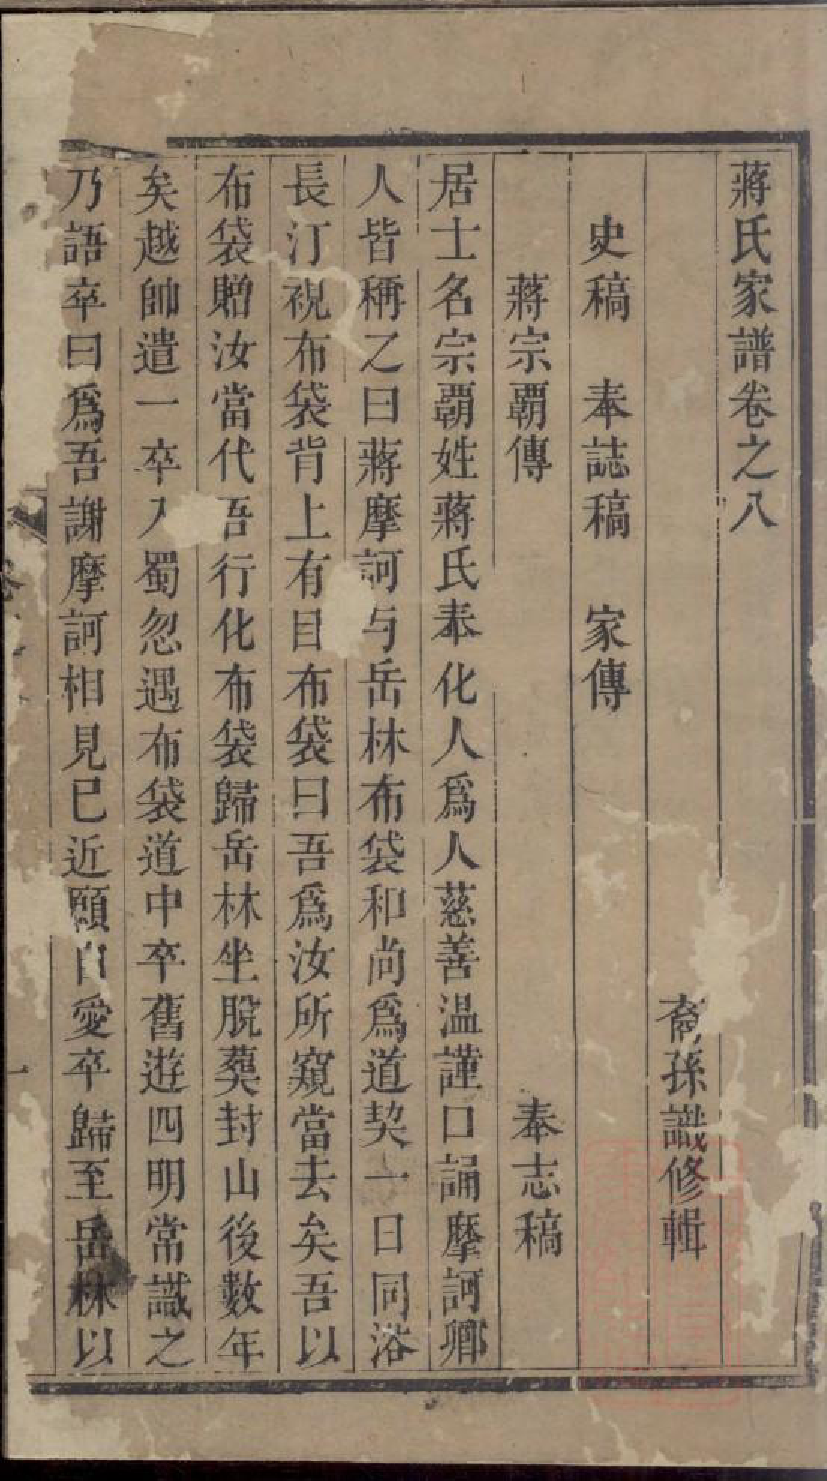 蔣氏家譜卷之八
裔孫識修輯
史稿　奉誌稿　家傳
蔣宗覇傳　奉志稿
居士名宗覇姓蔣氏奉化人爲人慈善温謹口誦摩訶鄉
人皆稱之曰蔣摩訶与岳林布袋和尚爲道契一日同浴
長汀視布袋背上有目布袋曰吾爲汝所窺當去矣吾以
布袋贈汝當代吾行化布袋歸岳林坐脫葬封山後數年
矣越帥遣一卒入蜀忽遇布袋道中卒舊遊四明常識之
乃語卒曰爲吾謝摩訶相見已近願自愛卒歸至岳林以